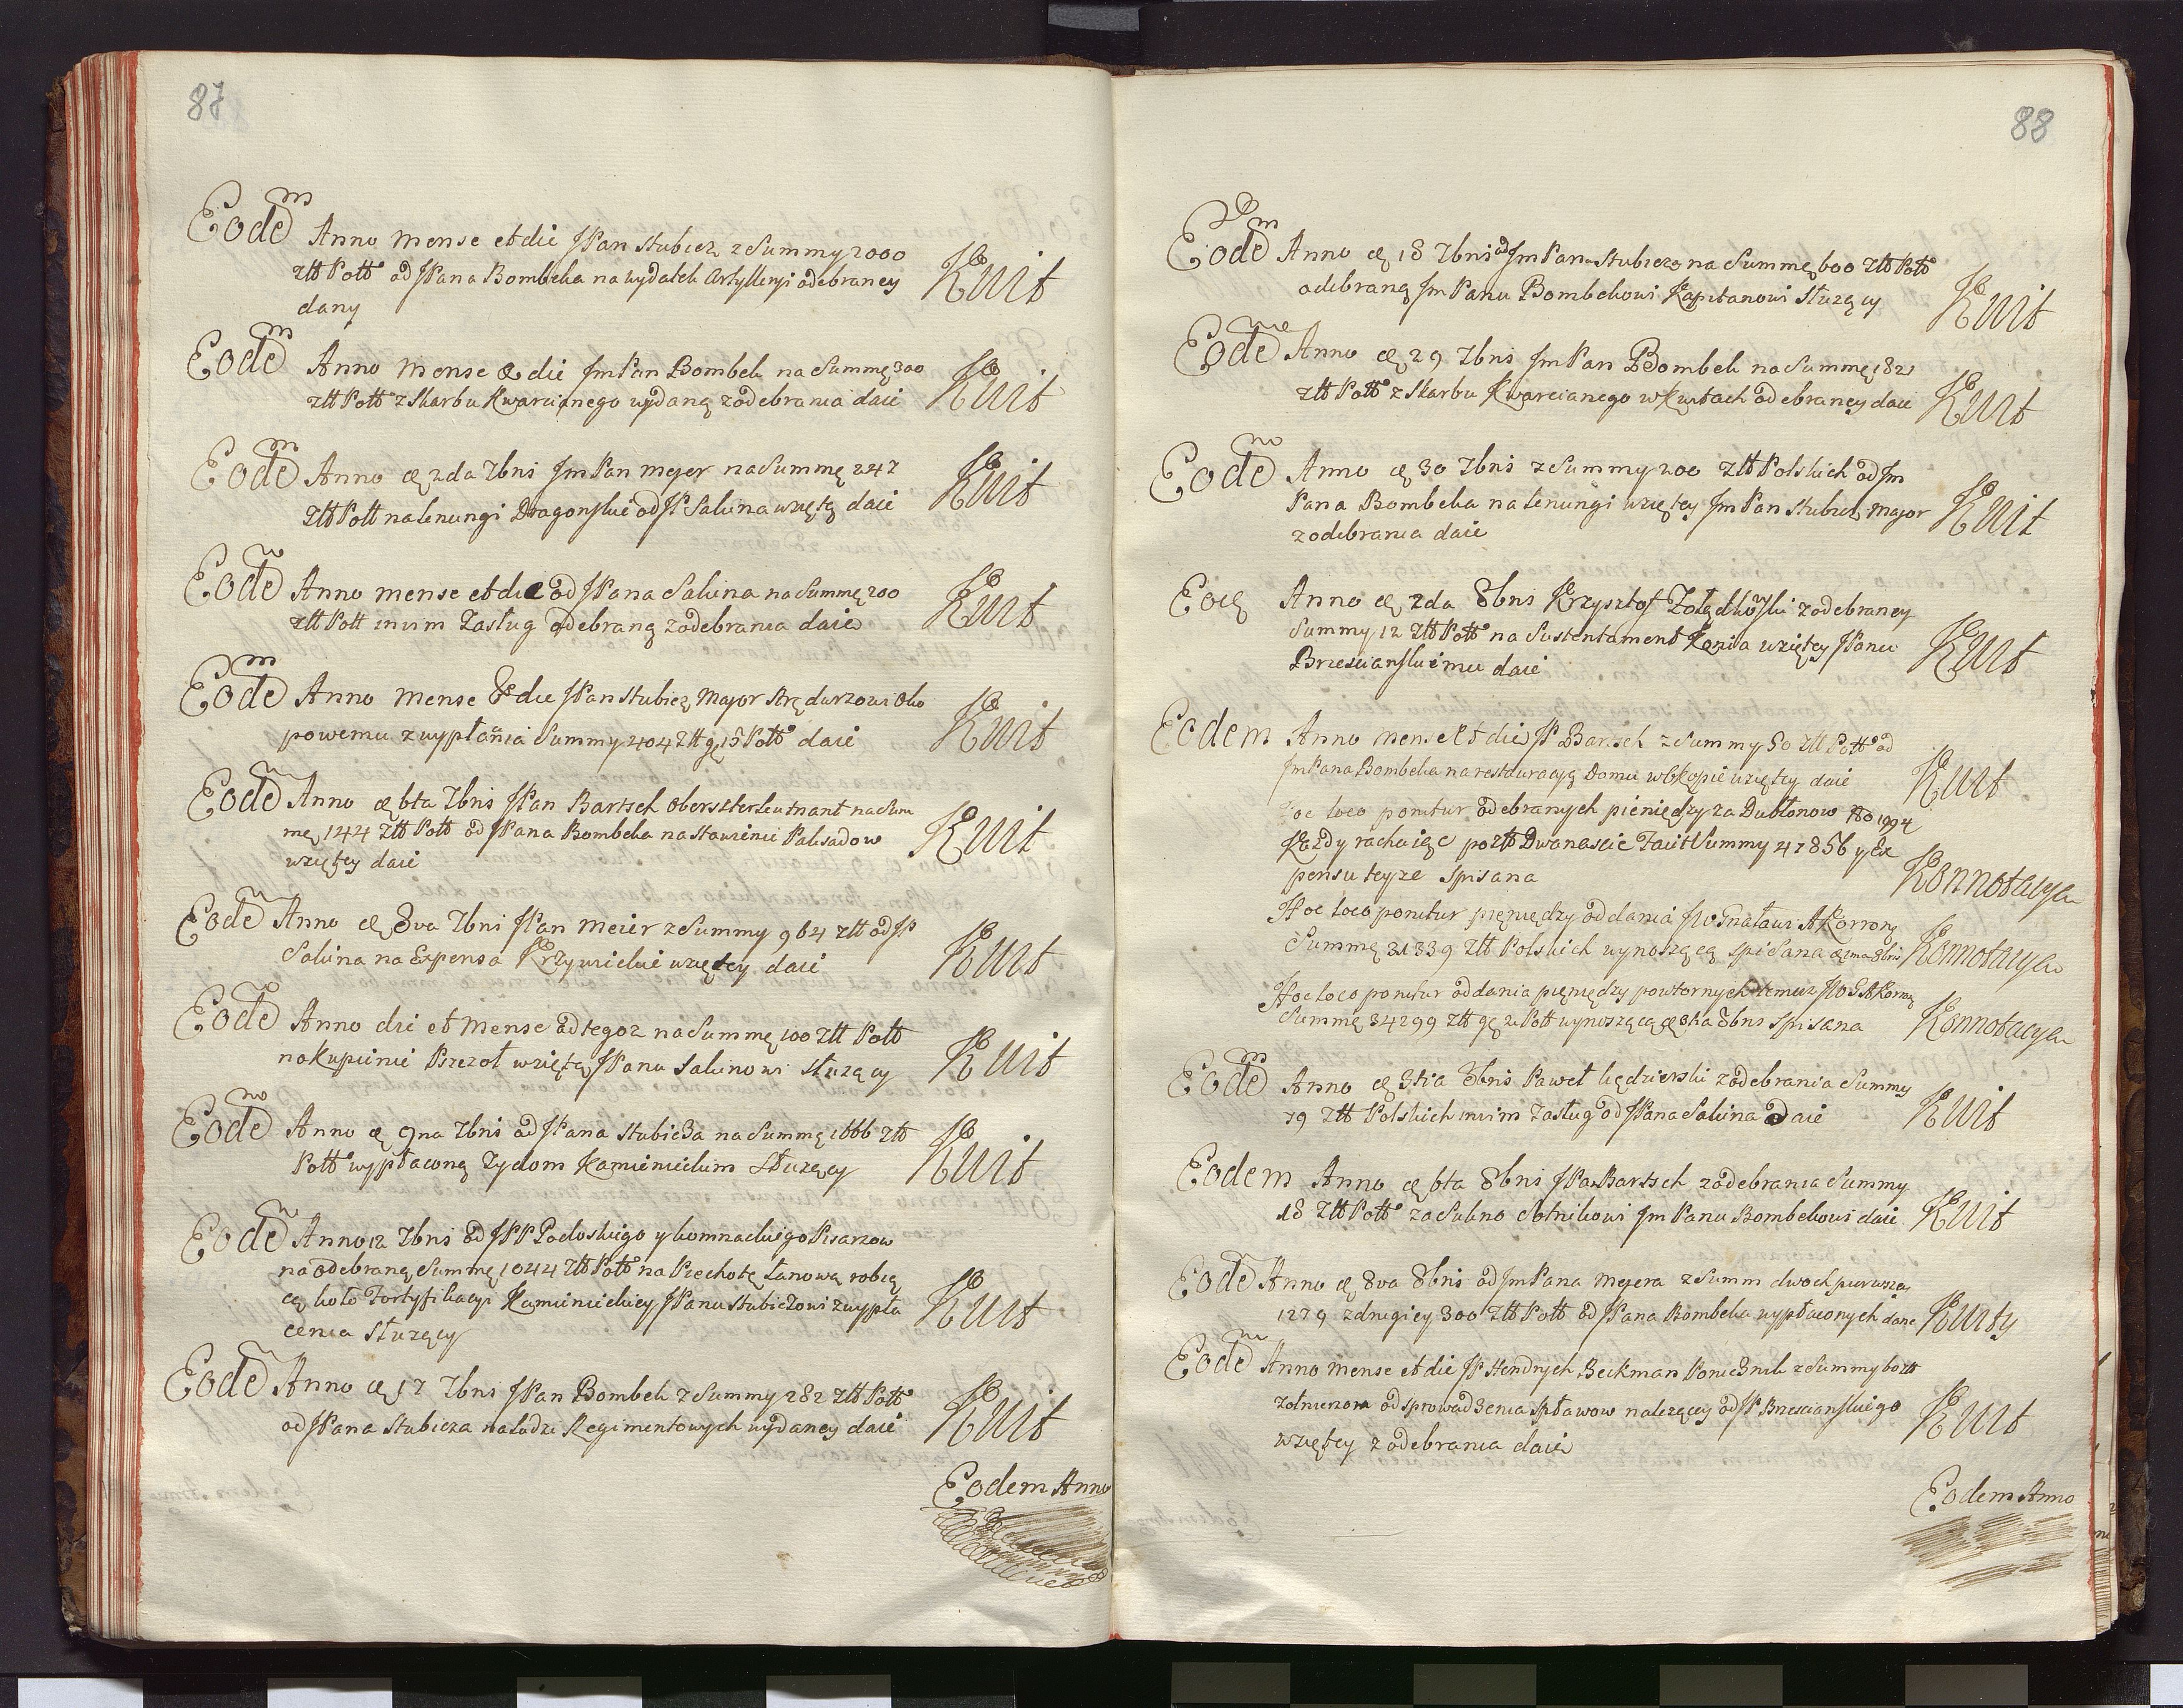 87
Eodem Anno mense et die JPan Stubicz z Summy 2000
Złł Poll od JPana Bombeka na wydatek Artylleryi odebraney
dany Kwit
Eodem Anno mense & die JmPan Bombek na Summę 300
złł Poll z Skarbu Kwarcianego wydaną z odebrania daie Kwit
Eodem Anno & 2da 7bris JmPan mejer na Summę 247
Złł Poll na lenungi Dragonskie od JP Salina wziętą daie Kwit
Eodem Anno mense et die od JPana Salina na Summę 200
złł Poll in vim Zasług odebraną z odebrania daie Kwit
Eodem Anno mense & die JPan Stubicz Major Arędarzowi Oko
powemu z wypłacania Summy 2404 Złł g. 15 Poll daie Kwit
Eodem Anno & 6ta 7bris JPan Bartsch Obersterleutnant na Sum
mę 144 Złł Poll od JPana Bombeka na Stawienie Palisadow
wziętey daie Kwit
Eodem Anno & 8va 7bris JPan Meier z Summy 964 złł od JP
Salina na Expensa Krzywickie wziętey daie Kwit
Eodem Anno die et mense od tegoz na Summę 100 Złł Poll
na kupienie Pszczoł wziętą JPanu Salinowi Służący Kwit
Eodem Anno & 9na 7bris od JPana Stubicza na Summę 1666 Złł
Poll wypłaconą Zydom Kamienieckim Służący Kwit
Eodem Anno 12 7bris od JPP Padoskiego y komnackiego Pisarzow
na Odebraną Summę 1044 Złł Poll na Piechotę Łanową robią
cą koło Fortyfikacyi Kamienieckiey JPanu Stubiczowi z wypła
cenia Służący Kwit
Eodem Anno & 17 7bris JPan Bombek z Summy 282 Złł Poll
od JPana Stubicza na ludzi Regimentowych wydaney daie Kwit
Eodem Anno
88
Eodem Anno & 18 7bris od JmPana Stubicza na Summę 600 Złł Poll
odebraną JmPanu Bombekowi Kapitanowi Służący Kwit
Eodem Anno & 29 7bris JmPan Bombek na Summę 1821
Złł Poll z Skarbu Kwarcianego w Kwitach odebraney daie Kwit
Eodem Anno & 30 7bris z Summy 200 Złł Polskich od Jm
Pana Bombeka na lenungi wziętey JmPan Stubicz Major
z odebrania daie Kwit
Eodem Anno & 2da 8bris Krzysztof Zołędkowski z odebraney
Summy 12 Złł Poll na Sustentament Konia wziętey JPanu
Brzescianskiemu daie Kwit
Eodem Anno mense et die JP Bartsch z Summy 50 Złł Poll od
JmPana Bombeka na restauracyą Domu w Okopie wziętey daie Kwit
Hoc loco ponitur odebranych pieniędzy za Dublonow 1994
Każdy rachuiąc po złł Dwanascie Facit Summy 47856 y Ex
pensu teyze Spisana Konnotacya
Hoc loco ponitur pieniędzy oddania
Summę 31339 Złł Polskich wynoszącą spisana & ima 8bris Konnotacya
Hoc loco ponitur oddania pieniędzy powtornych
Summę 34299 złł Poll wynoszącą & 8bris Spisana Konnotacya
Eodem Anno & 3tia 8bris Paweł kędzierski z odebrania Summy
79 Złł Polskich in vim zasług od JPana Salina Daie Kwit
Eodem Anno & 6ta 8bris JPan Bartsch z odebrania Summy
18 Złł Poll za Sukno Setnikowi JmPanu Bombekowi daie Kwit
Eodem Anno & 8va 8bris od JmPana Mejera z Summ dwoch pierwszey
1279 z drugiey 300 Złł Poll od JPana Bombeka wypłaconych dane Kwity
Eodem Anno mense et die JP Hendrych Beckman Porucznik z Summy 60 złł
żołnierzom od sprowadzenia spławow należącey od JP Brzescianskiego
wziętey z odebrania daie Kwit
Eodem Anno